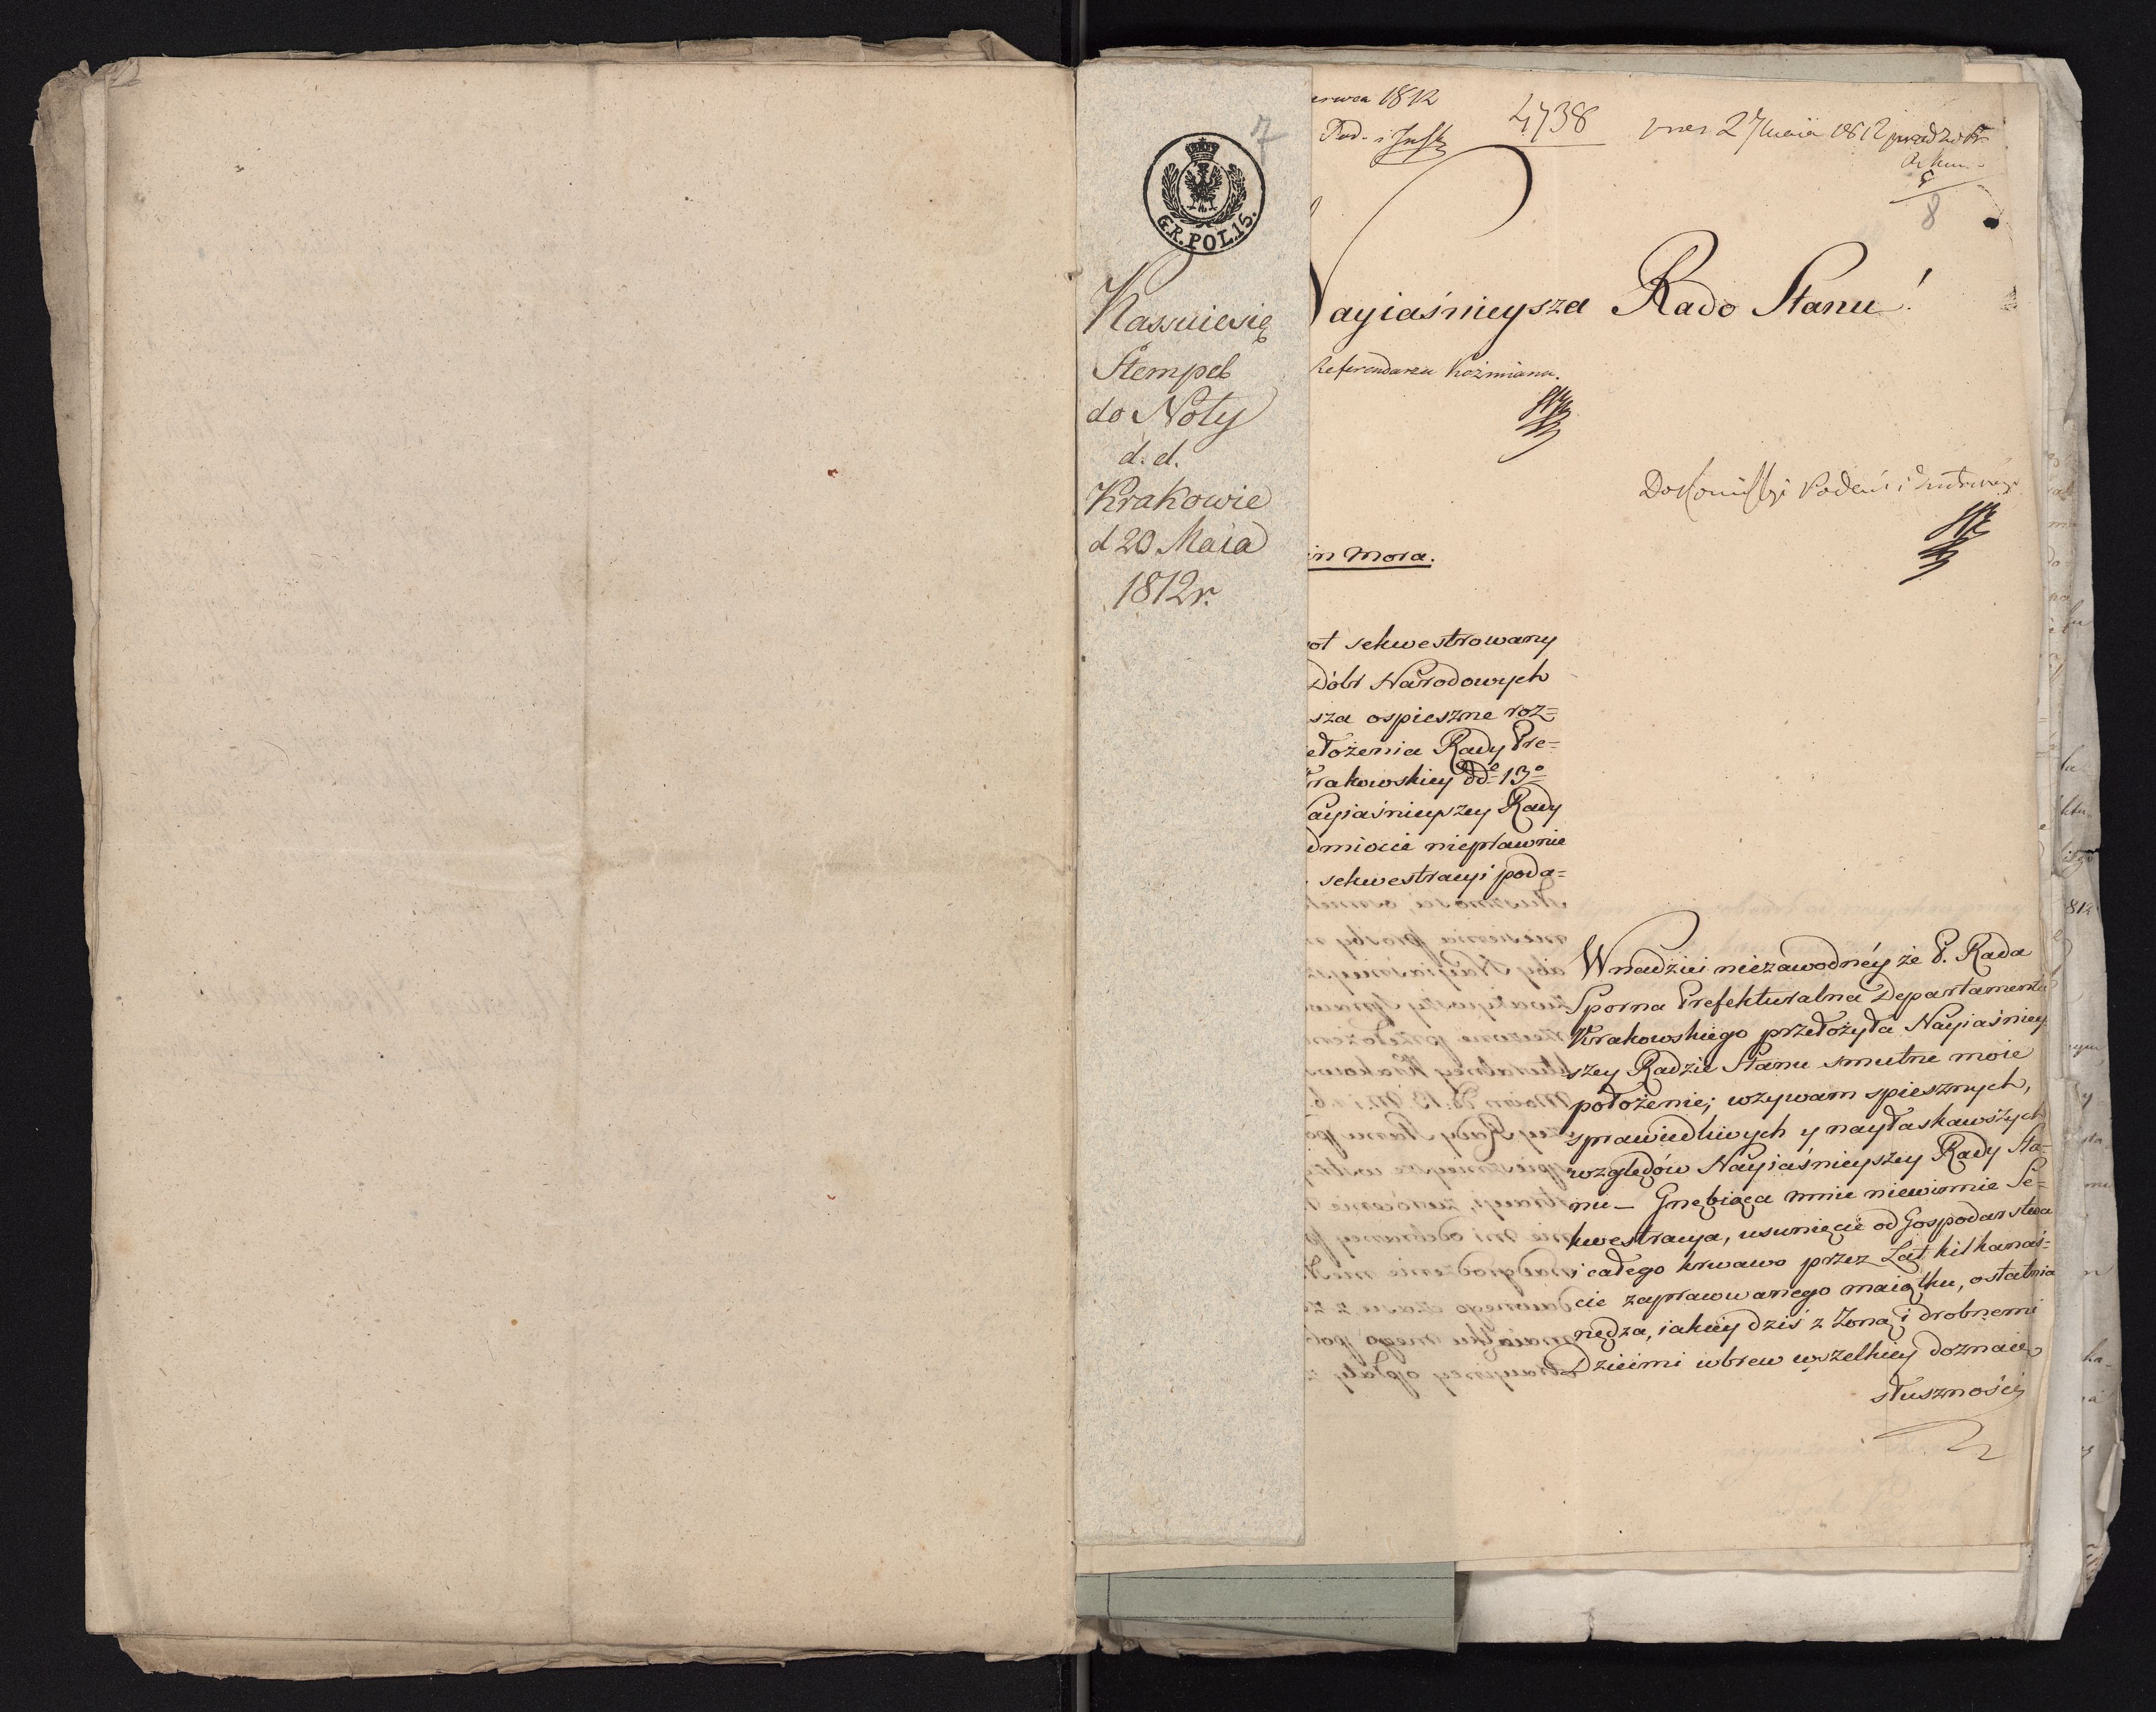 7
GR. POL. 15.
Kassuiesię
Stempel
do Noty
d. d.
Krakowie
d 20 Maia
1812r.
erwca 1812
4738
pres 27 Maia 1812 przed
8
ayiaśnieysza Rado Stanu!
Referendarza Koźmiana.
Do Kommissyi Podań i
in Mora.
ot sekwestrowany
Dóbr Narodowych
sza ospieszne roz=
ełożenia Rady Pre=
rakowskiey dd° 13°
ayiaśnieyszey Rady
dmiocie nieprawnie
sekwestracyi poda=
W nadziei niezawodnéy że P. Rada
Sporna Prefekturalna Departamentu
Krakowskiego przełożyła Nayiaśniey
szey Radzie Stanu smutne moie
położenie; wzywam spiesznych,
sprawiedliwych y nayłaskawszych
względów Nayiaśnieyszey Rady Sta=
nu – Gnębiąca mnie niewinnie Se=
kwestracya, usunięcie od Gospodarstwa
i całego krwawo przez Lat kilkanaś=
cie zapracowanego maiątku, ostatnia
nędza, iakiey dziś z Żoną i drobnemi
Dziećmi wbrew wszelkiey doznaię
słuszności